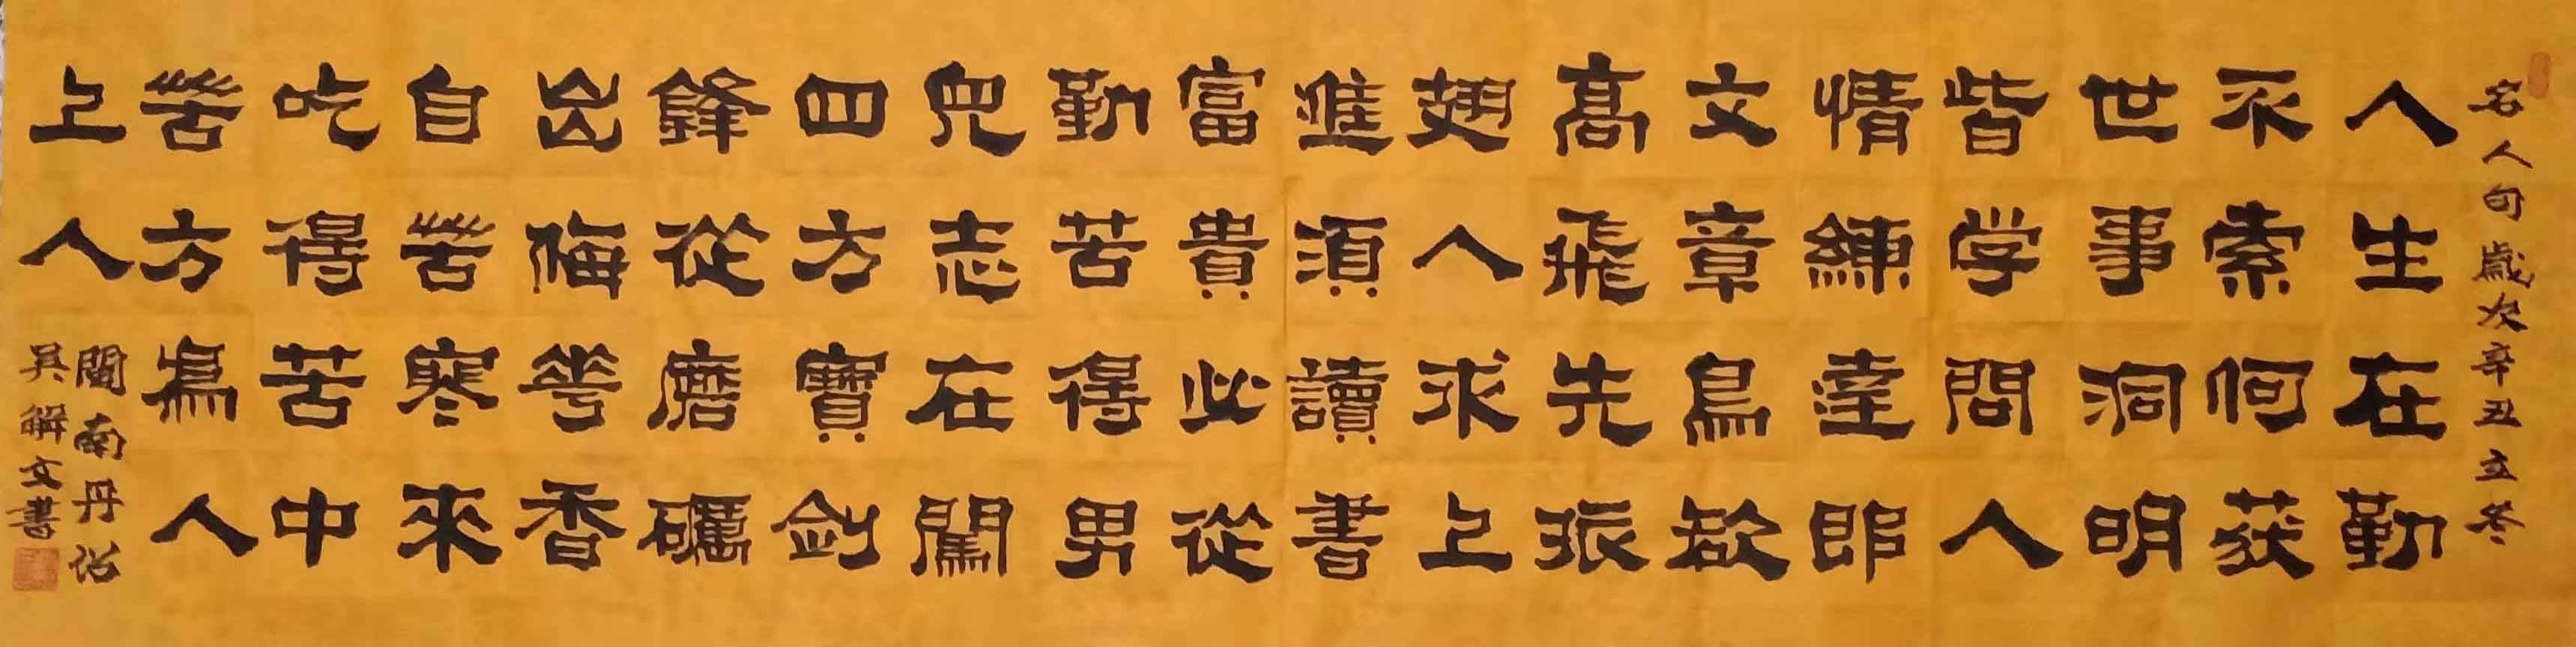 名人句歲次辛丑立冬
人生在勤
不索何获
世事洞明
皆学問人
情練達即
文章鳥欲
高飛先振
翅人求上
進須讀書
富貴必從
勤苦得男
兒志在闖
四方寶剑
鋒從磨礪
出梅花香
自苦寒來
吃得苦中
苦方為人
上人
閩南丹诏
吳解文書